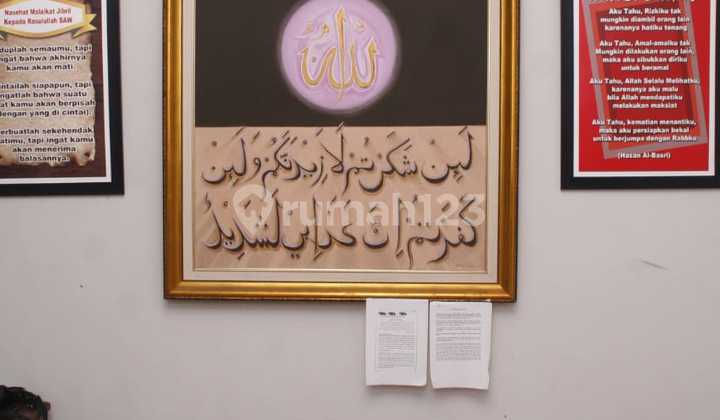 Nasehat Malaikat Jibril
Kepada Rasulallah SAW
duplah semaumu, tapi
ngat bahwa akhirnya
kamu akan mati
ntailah siapapun, tapi
ngatlah bahwa suatu
at kamu akan berpisah
dengan yang di cintai).
erbuatlah sekehendak
atimu, tapi ingat kamu
akan menerima
balasannya.
الله
لَئِنْ شَكَرْتُمْ لَأَزِيدَنَّكُمْ وَلَئِنْ
كَفَرْتُمْ إِنَّ عَذَابِي لَشَدِيدٌ
rumah123
Aku Tahu, Rizkiku tak
mungkin diambil orang lain
karenanya hatiku tenang
Aku Tahu, Amal-amalku tak
Mungkin dilakukan orang lain,
maka aku sibukkan diriku
untuk beramal
Aku Tahu, Allah Selalu Melihatku,
karenanya aku malu
bila Allah mendapatiku
melakukan maksiat
Aku Tahu, kematian menantiku,
maka aku persiapkan bekal
untuk berjumpa dengan Rabbku
(Hasan Al-Basri)